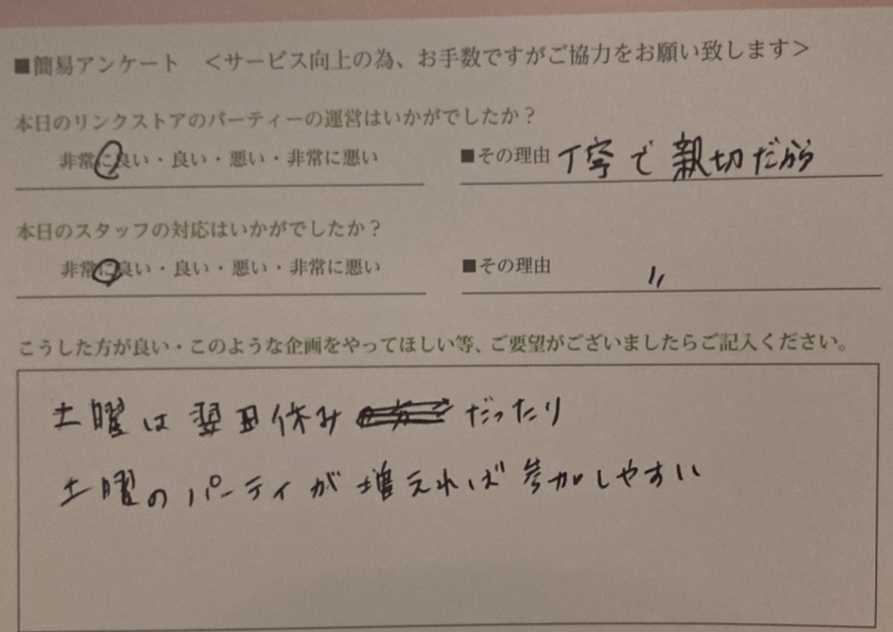 ■簡易アンケート <サービス向上の為、お手数ですがご協力をお願い致します>
本日のリンクストアのパーティーの運営はいかがでしたか?
非常に良い・良い・悪い・非常に悪い ■その理由 丁寧で親切だから
本日のスタッフの対応はいかがでしたか?
非常に良い・良い・悪い・非常に悪い ■その理由 〃
こうした方が良い・このような企画をやってほしい等、ご要望がございましたらご記入ください。
土曜は翌日休みだったり
土曜のパーティが増えれば参加しやすい